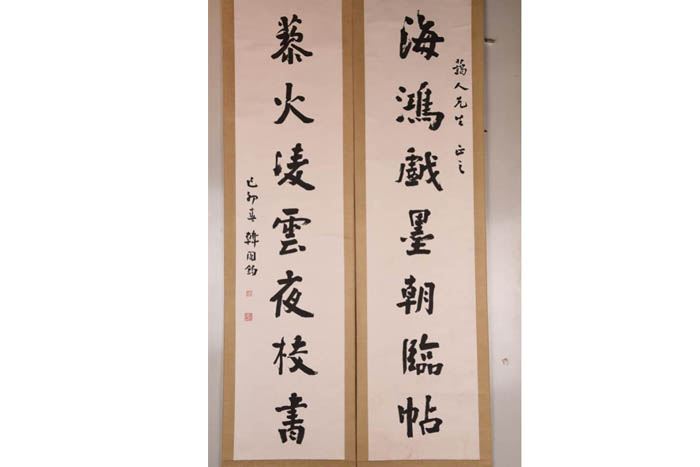 人先生 正之
海鴻戲墨朝臨帖
藜火凌雲夜校書
己卯春 韓国鈞